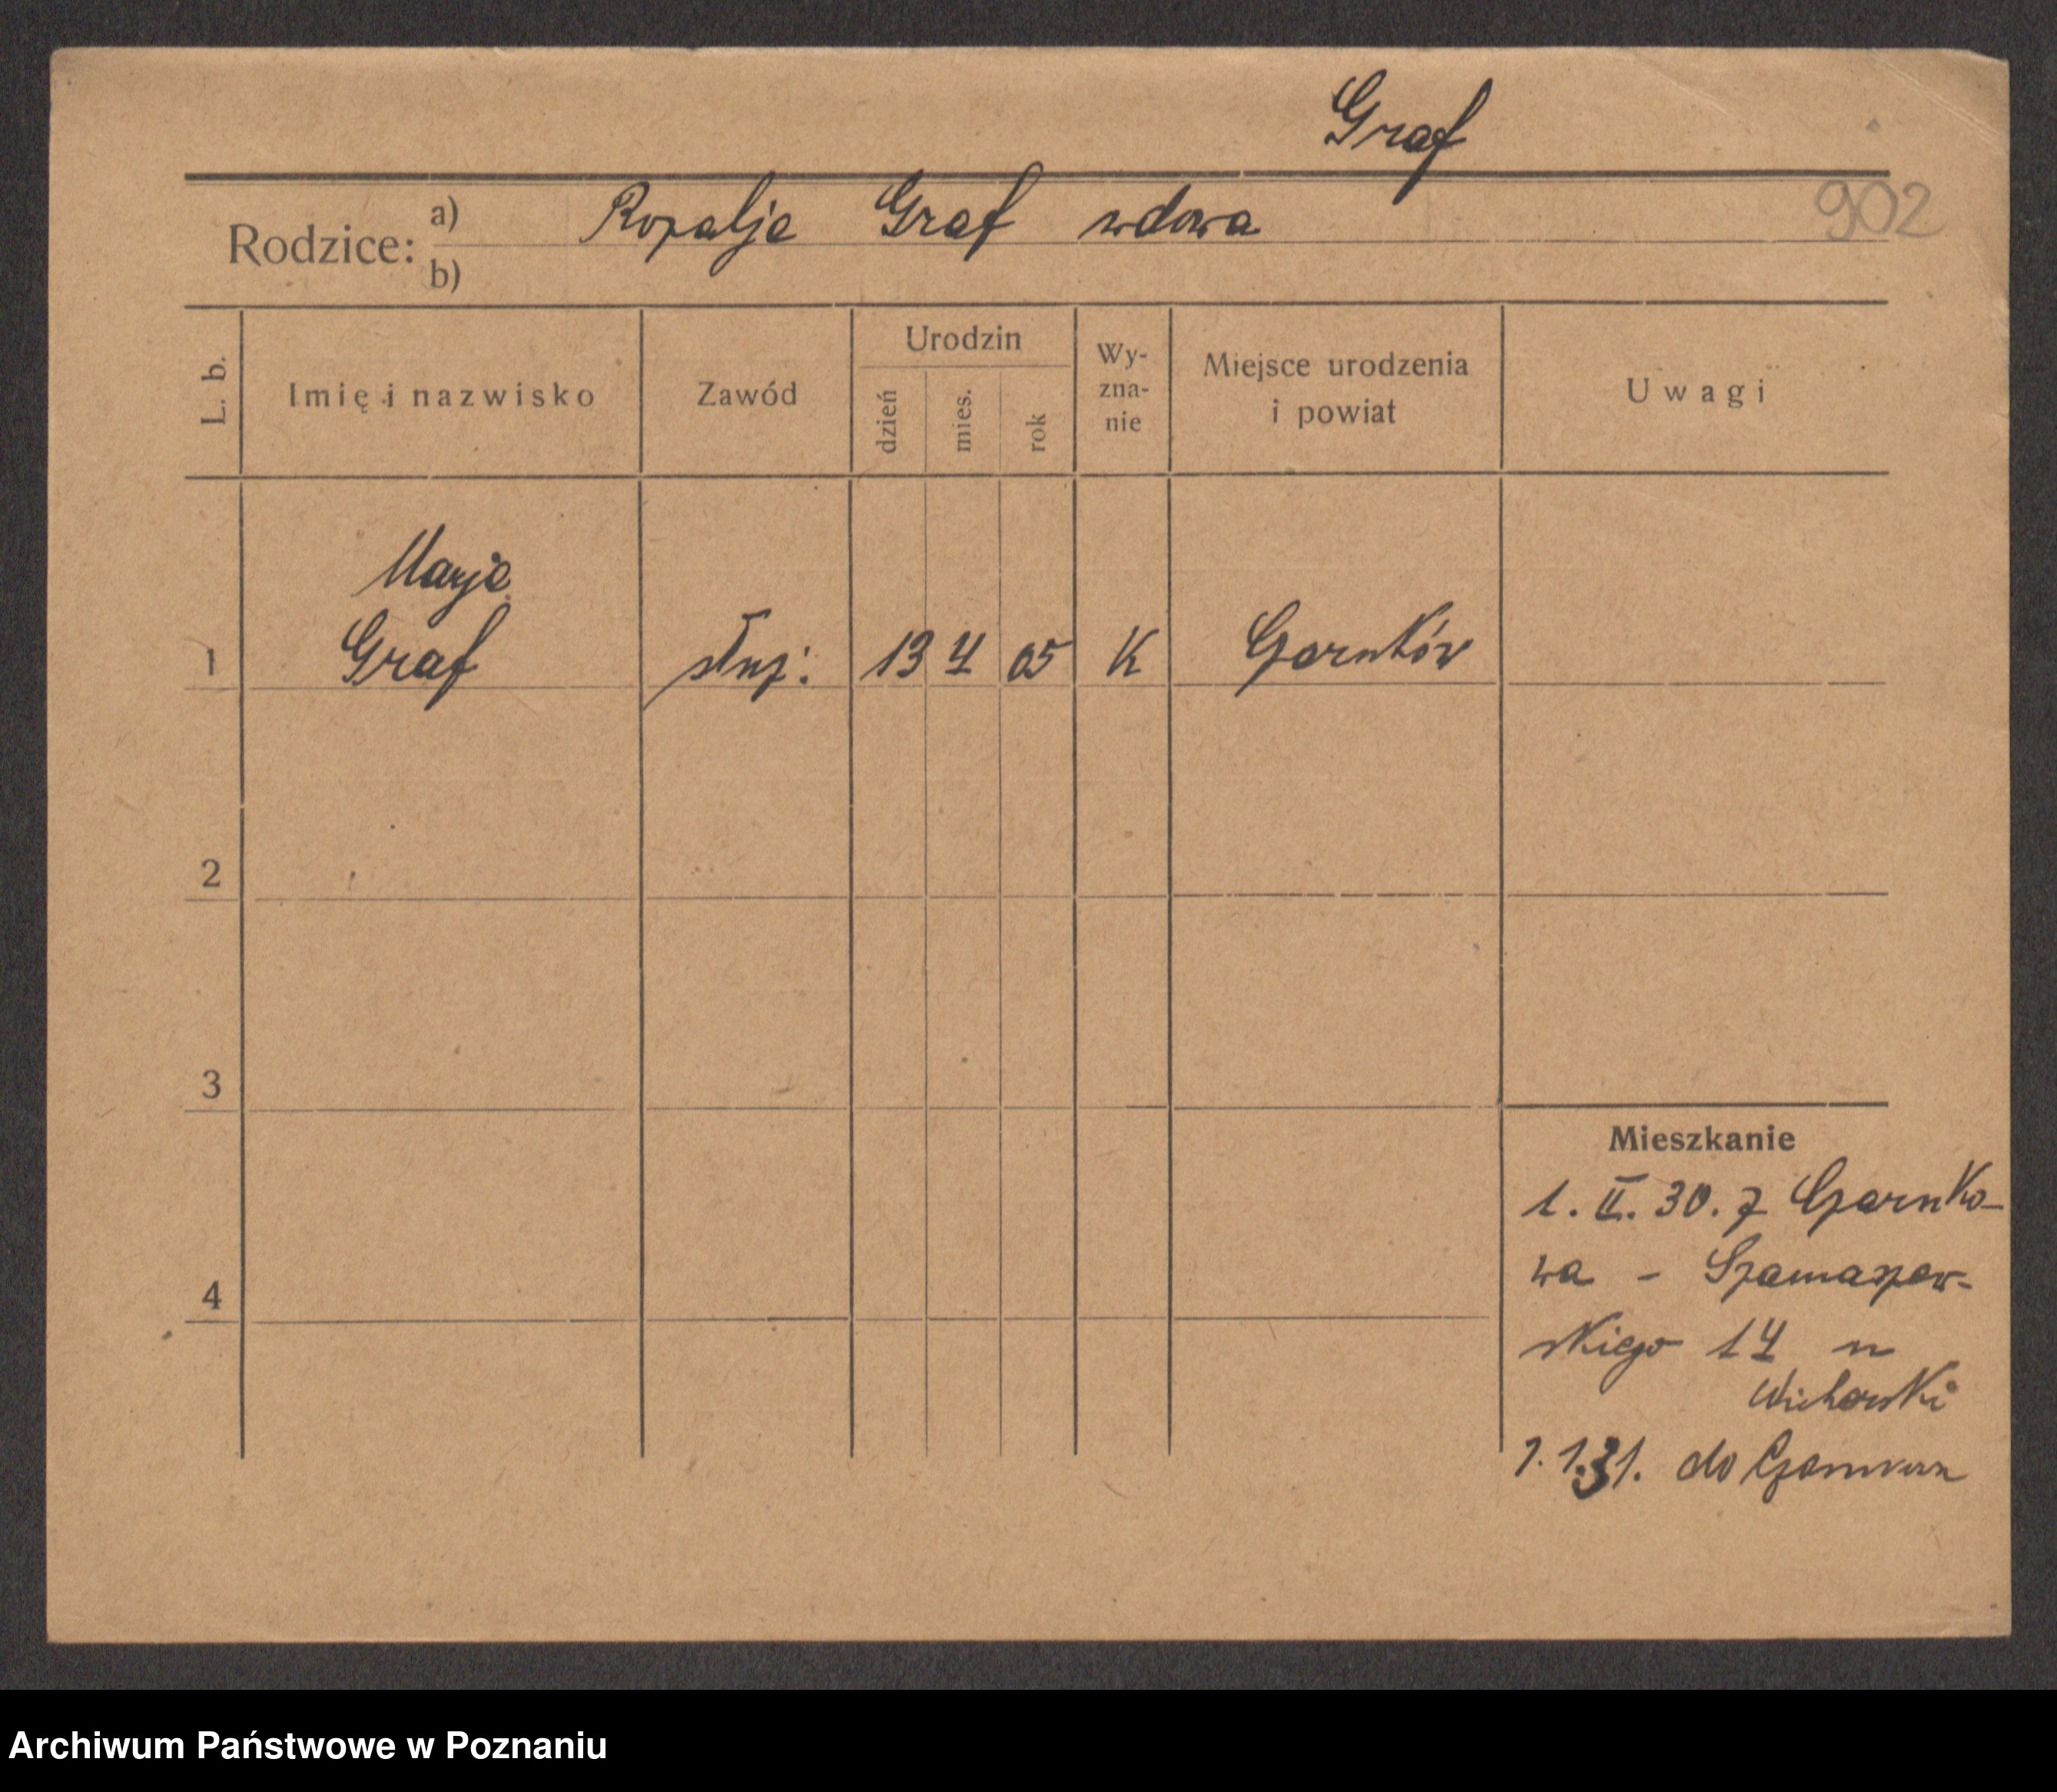 Graf
902
Rodzice: a) Rozalja Graf wdowa
b)
L. b. Imię i nazwisko Zawód Urodzin dzień mies. rok Wy-zna-nie Miejsce urodzenia i powiat Uwagi
Marja
1 Graf służ: 13 4 05 K Czarnków
2
3
4
Mieszkanie
1. II. 30. z Czarnko-
wa - Szamarzew-
skiego 14 u
Wicherski
1.1.31. do Czarnkowa
Archiwum Państwowe w Poznaniu